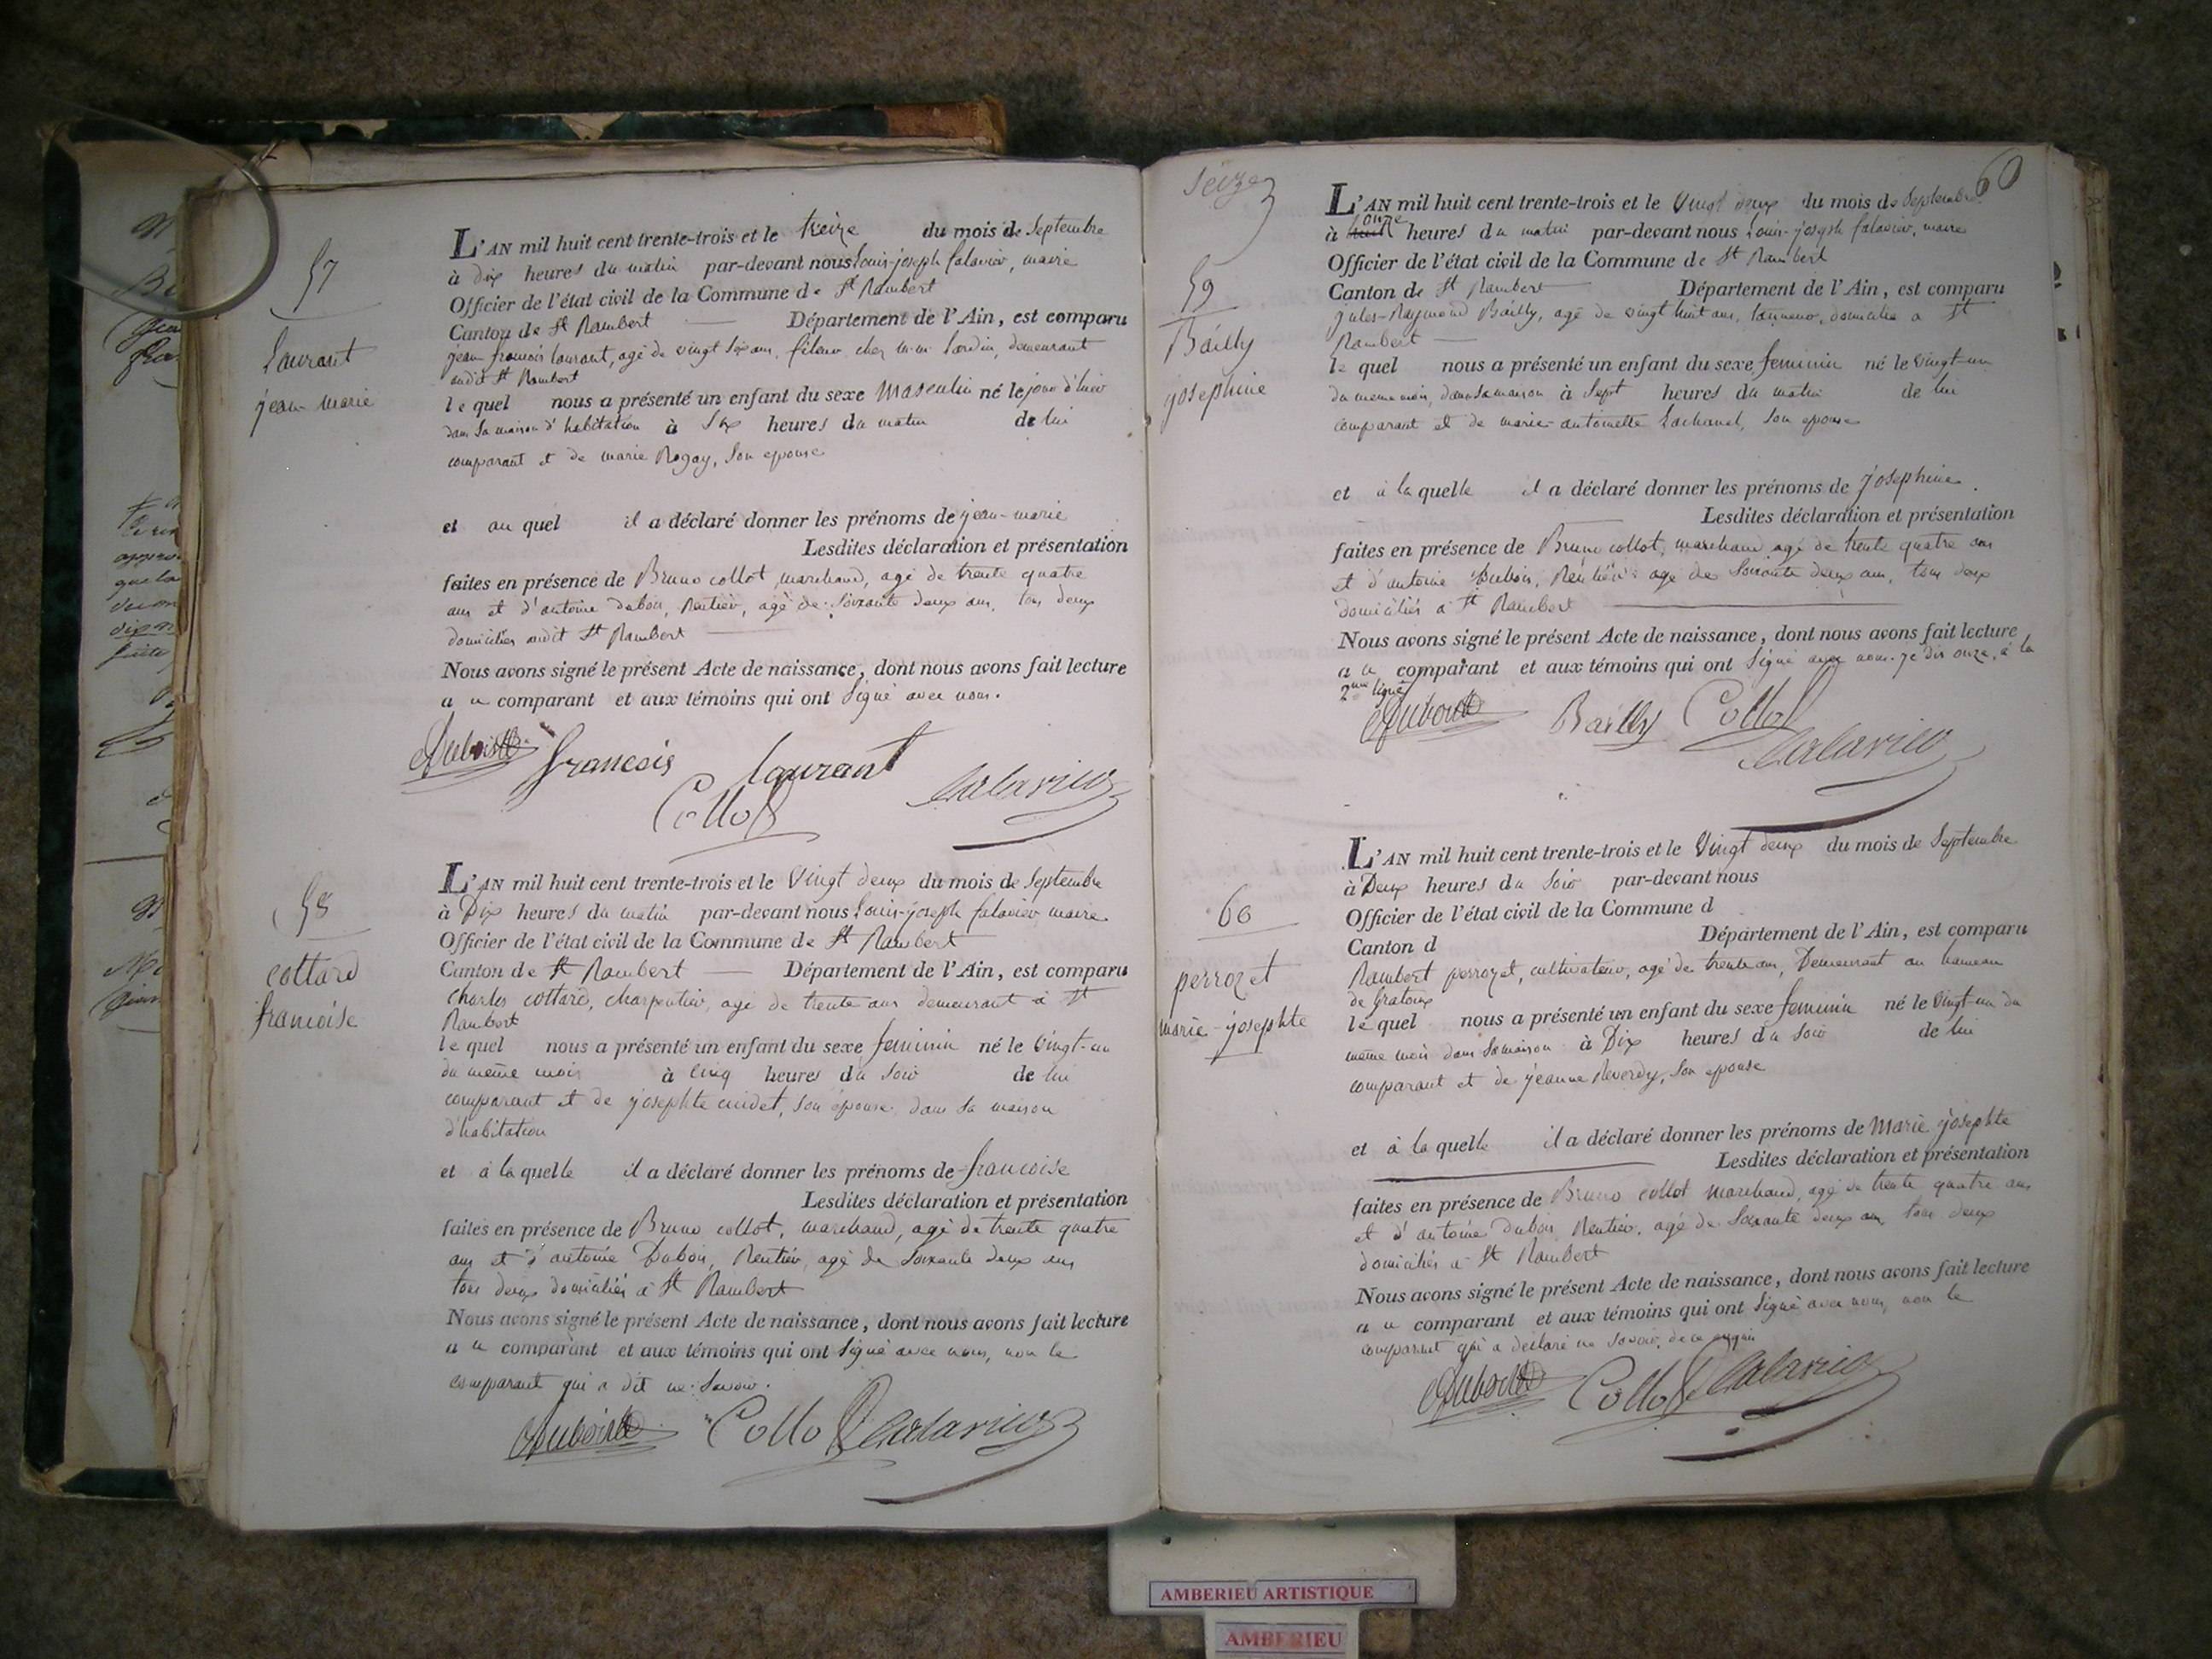 57
Laurant
jean-marie
L'AN mil huit cent trente-trois et le treize du mois de Septembre
à dix heures du matin par-devant nous Louis-joseph falavier, maire
Officier de l'état civil de la Commune de St Rambert
Canton de St Rambert Département de l'Ain, est comparu
jean françois laurant, agé de vingt six ans, fileur chez m.m. Sardin, demeurant
audit St Rambert
lequel nous a présenté un enfant du sexe Masculin né le jour d'hier
dans sa maison d'habitation à Six heures du matin de lui
comparant et de marie Rogay, son epouse
et au quel il a déclaré donner les prénoms de jean-marie
Lesdites déclaration et présentation
faites en présence de Bruno collot, marchand, agé de trente quatre
ans et d'antoine dubois, Rentier, agé de Soixante deux ans, tous deux
domiciliés audit St Rambert
Nous avons signé le présent Acte de naissance, dont nous avons fait lecture
au comparant et aux témoins qui ont Signé avec nous.
Dubois françois laurant
Collot falavier
58
cottard
francoise
L'AN mil huit cent trente-trois et le Vingt deux du mois de Septembre
à Dix heures du matin par-devant nous Louis-joseph falavier maire
Officier de l'état civil de la Commune de St Rambert
Canton de St Rambert Département de l'Ain, est comparu
Charles cottard, charpentier, agé de trente ans demeurant à St
Rambert
lequel nous a présenté un enfant du sexe feminin né le Vingt-un
du même mois à cinq heures du Soir de lui
comparant et de josephte cuidet, son épouse dans sa maison
d'habitation
et à la quelle il a déclaré donner les prénoms de francoise
Lesdites déclaration et présentation
faites en présence de Bruno collot, marchand, agé de trente quatre
ans et d'antoine Dubois, Rentier, agé de Soixante deux ans
tous deux domiciliés à St Rambert
Nous avons signé le présent Acte de naissance, dont nous avons fait lecture
au comparant et aux témoins qui ont Signé avec nous, non le
comparant qui a dit ne Savoir.
Dubois Collot falavier
Seize
60
59
Bailly
josephine
L'AN mil huit cent trente-trois et le Vingt deux du mois de Septembre
onze
à heures du matin par-devant nous Louis-joseph falavier, maire
Officier de l'état civil de la Commune de St Rambert
Canton de St Rambert Département de l'Ain, est comparu
jules-Raymond Bailly, agé de vingt huit ans, tanneur, domicilié a St
Rambert
le quel nous a présenté un enfant du sexe feminin né le Vingt-un
du meme mois, dans sa maison à Sept heures du matin de lui
comparant et de marie-antoinette Lachanel, son epouse
et à la quelle il a déclaré donner les prénoms de josephine.
Lesdites déclaration et présentation
faites en présence de Bruno collot, marchand agé de trente quatre ans
et d'antoine Dubois, Rentier agé de Soixante deux ans, tous deux
domiciliés à St Rambert
Nous avons signé le présent Acte de naissance, dont nous avons fait lecture
au comparant et aux témoins qui ont Signé avec nous. je dis onze, à la
2me ligne
Dubois Bailly Collot
falavier
60
perrozet
marie-josephte
L'AN mil huit cent trente-trois et le Vingt deux du mois de Septembre
à Deux heures du Soir par-devant nous
Officier de l'état civil de la Commune d
Canton d Département de l'Ain, est comparu
Rambert perrozet, cultivateur, agé de trente ans, Demeurant au hameau
de Gratoux
le quel nous a présenté un enfant du sexe feminin né le Vingt-un du
même mois dans sa maison à Dix heures du Soir de lui
comparant et de jeanne Reverdy, son epouse
et à la quelle il a déclaré donner les prénoms de Marie josephte
Lesdites déclaration et présentation
faites en présence de Bruno collot marchand, agé de trente quatre ans
et d'antoine Dubois Rentier, agé de Soixante deux ans, tous deux
domiciliés à St Rambert
Nous avons signé le présent Acte de naissance, dont nous avons fait lecture
au comparant et aux témoins qui ont Signé avec nous, non le
comparant qui a déclaré ne Savoir, de ce enquis
Dubois Collot falavier
AMBERIEU ARTISTIQUE
AMBERIEU